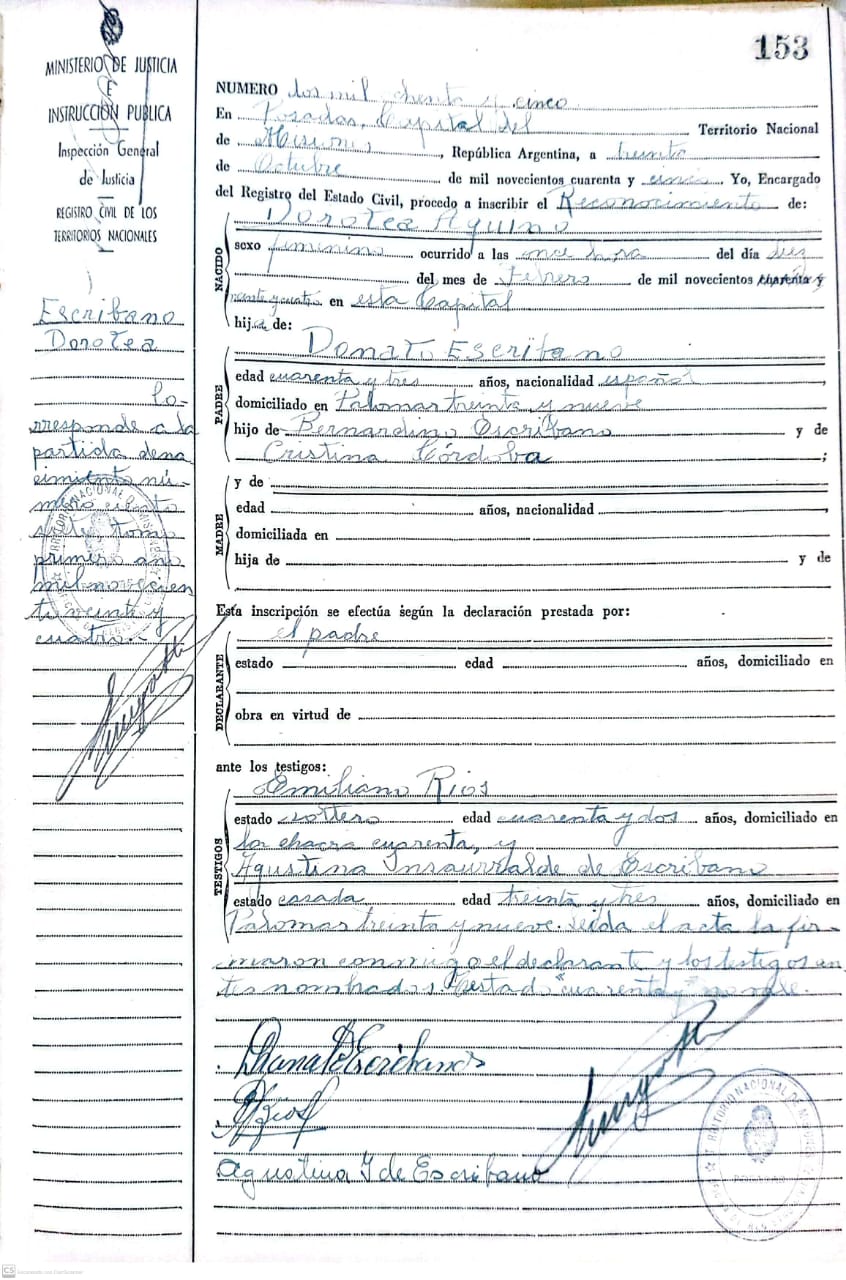 153
MINISTERIO DE JUSTICIA
E
INSTRUCCIÓN PUBLICA
Inspección General
de Justicia
REGISTRO CIVIL DE LOS
TERRITORIOS NACIONALES
Escribano
Dorotea
Co-
rresponde a la
partida de na
cimiento nú-
mero ciento
siete tomo
primero año
mil novecien
to veinte y
cuatro.
NUMERO dos mil ochenta y cinco
En Posadas, Capital del Territorio Nacional
de Misiones, República Argentina, a treinta
de Octubre de mil novecientos cuarenta y cinco Yo, Encargado
del Registro del Estado Civil, procedo a inscribir el Reconocimiento de:
Dorotea Aquino
NACIDO
sexo femenino ocurrido a las once hora del día diez
del mes de Febrero de mil novecientos cuarenta y
veinte y cuatro en esta Capital
hija de:
Donato Escribano
PADRE
edad cuarenta y tres años, nacionalidad español,
domiciliado en Palomar treinta y nueve
hijo de Bernardino Escribano y de
Cristina Córdoba;
MADRE
y de
edad años, nacionalidad,
domiciliada en
hija de y de
Esta inscripción se efectúa según la declaración prestada por:
el padre
DECLARANTE
estado edad años, domiciliado en
obra en virtud de
ante los testigos:
Emiliano Rios
TESTIGOS
estado soltero edad cuarenta y dos años, domiciliado en
la chacra cuarenta, y
Agustina Insaurralde de Escribano
estado casada edad treinta y tres años, domiciliado en
Palomar treinta y nueve. Leída el acta la fir-
maron conmigo el declarante y los testigos an
tes nombrados. Testado "cuarenta y" no vale.
Donato Escribano
Rios
Agustina I de Escribano
TERRITORIO NACIONAL DE MISIONES
POSADAS
CS